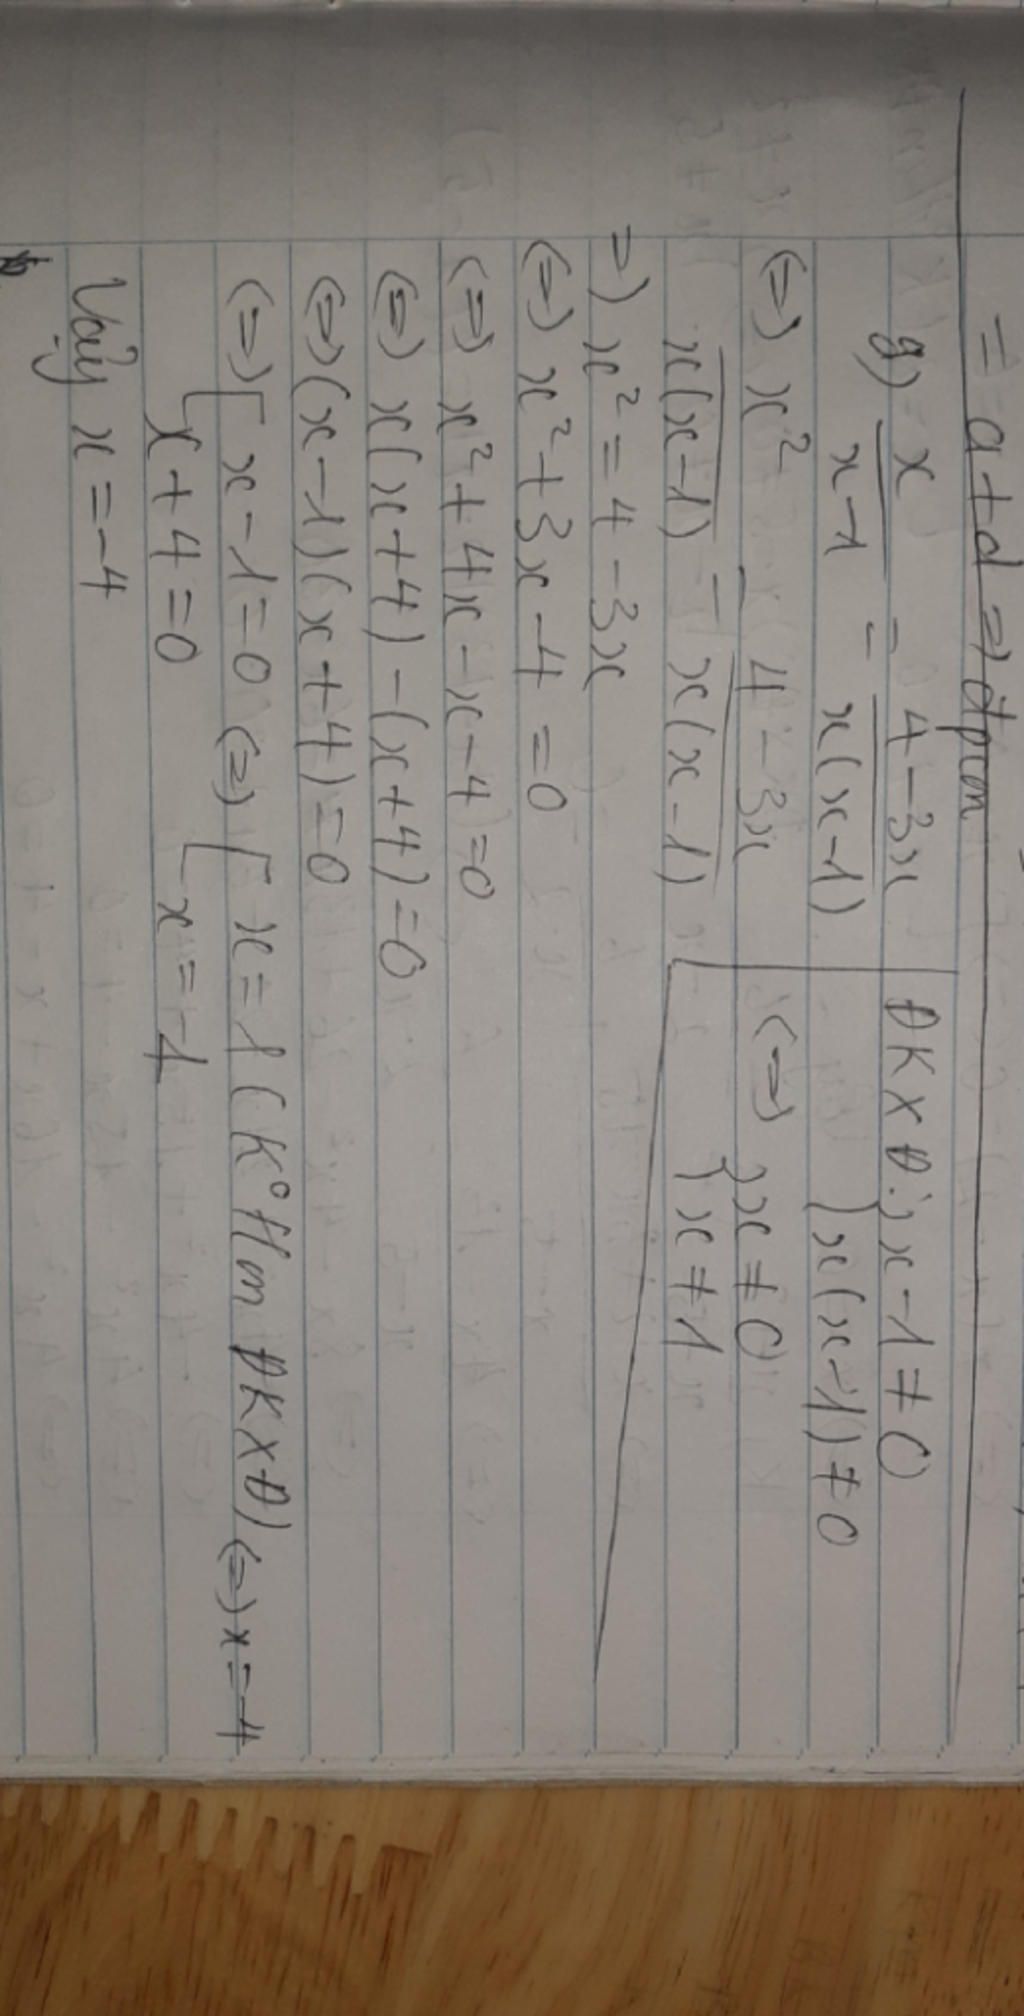 = a + d => đpcm
g) x/(x-1) = (4-3x)/(x(x-1))
ĐKXĐ: { x-1 ≠ 0
{ x(x-1) ≠ 0
(=) { x ≠ 0
{ x ≠ 1
(=) x²/(x(x-1)) = (4-3x)/(x(x-1))
=) x² = 4 - 3x
(=) x² + 3x - 4 = 0
(=) x² + 4x - x - 4 = 0
(=) x(x+4) - (x+4) = 0
(=) (x-1)(x+4) = 0
(=) [ x-1 = 0 (=) [ x = 1 (K° tm ĐKXĐ) (=) x = -4
[ x+4 = 0 [ x = -4
Vậy x = -4